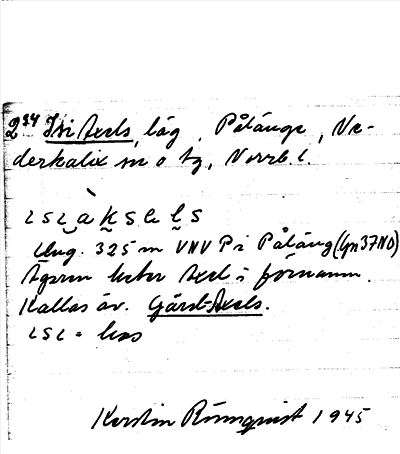 2³⁴ Isi Axels, läg. Pålänge, Ne-
derkalix sn o tg, Norrb. l.
ɩsɩ̮àksels
Ung. 325 m VNV P i Påläng (Gn37NO)
Ägaren heter Axel i förnamn.
Kallas äv. Gärd-Axels.
ɩsɩ = hos
Kerstin Rönnquist 1945